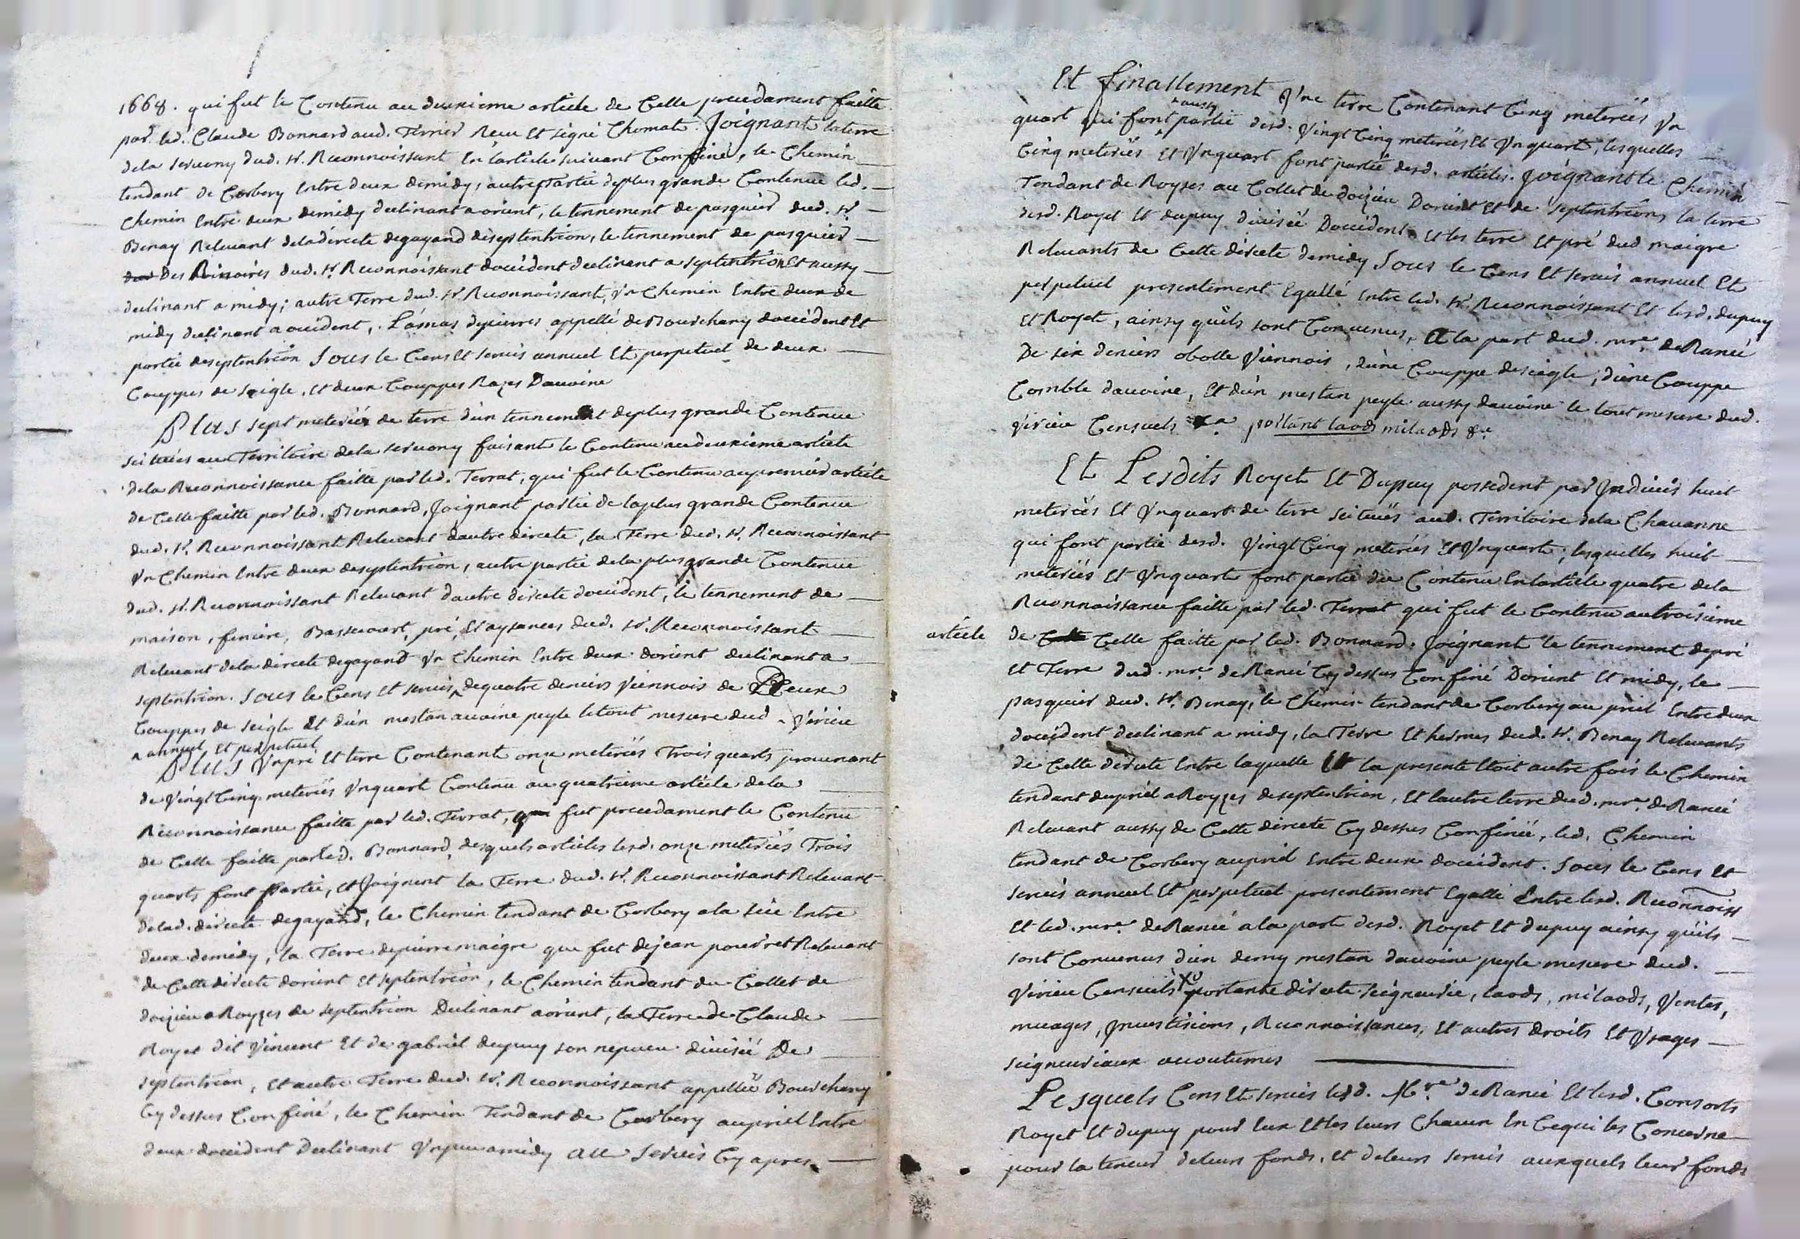 1668. qui fut le Contenu au deuxieme article de Celle precedament faitte
par led. Claude Bonnard aud. Terrier Receu Et signé Chomat. Joignant la terre
dela servony dud. Sr. Reconnoissant En l'article suivant Confiné, le Chemin
tendant de Corbery Entre deux demidy, autre Partie deplus grande Contenue led.
Chemin Entre deux demidy declinant a orient, le tennement de pasquier dud. Sr.
Benay Relevant dela directe degayand deseptentrion, le tennement de pasquier
Des Rivoires dud. Sr Reconnoissant doccident declinant a septentrion Et aussy
declinant a midy; autre Terre dud. Sr Reconnoissant, Vn Chemin Entre deux de
midy declinant a occident, Lamas depierres appellé de Bourchany doccident Et
partie deseptentrion Sous le Cens Et servis annuel Et perpetuel de deux
Couppes de seigle, Et deux Couppes Razes Davoine
Plus sept meteriés de terre d'un tennement deplus grande Contenue
scituées au Territoire dela servony faisant le Contenu au deuxieme article
dela Reconnoissance faitte par led. Terrat, qui fut le Contenu au premier article
de Celle faitte par led. Bonnard, Joignant partie de la plus grande Contenue
dud. Sr. Reconnoissant Relevant dautre directe, la Terre dud. Sr. Reconnoissant
Vn Chemin Entre deux deseptentrion, autre partie dela plus grande Contenue
dud. Sr. Reconnoissant Relevant dautre directe doccident, le tennement de
maison, feniere, Bassecourt, pré, Et aysances dud. Sr. Reconnoissant
Relevant dela directe degayand Vn Chemin Entre deux dorient declinant a
septentrion. Sous le Cens Et servis ^ dequatre deniers Viennois de Deux
Couppes de seigle Et d'un mestan avoine peyle le tout mesure dud. Virieu
^ annuel Et perpetuel
Plus Vn pré Et terre Contenant onze meteriés Trois quarts provenant
de Vingt Cinq meteriés Vn quart Contenu au quatrieme article dela
Reconnoissance faitte par led. Terrat, qui fut precedament le Contenu
de Celle faitte par led. Bonnard, desquels articles lesd. onze meteriés Trois
quarts font Partie, Et Joignent la Terre dud. Sr. Reconnoissant Relevant
delad. directe degayand, le Chemin tendant de Corbery a la Entre
deux demidy, la Terre depierre maigre que fut dejean Relevant
de Celle directe dorient Et septentrion, le Chemin tendant du Collet de
doizieu a Royzes de septentrion Declinant a orient, la Terre de Claude
Royet dit Vincent Et de gabriel dupuy son nepveu divisée De
septentrion, Et autre Terre dud. Sr. Reconnoissant appellée Bourchany
Cy dessus Confiné, le Chemin Tendant de Corbery au priel Entre
deux doccident Declinant Vn peu a midy au Servis Cy apres
Et finallement Vne terre Contenant Cinq meteriés Vn
quart qui font ^aussy partie desd. Vingt Cinq meteriés Et Vn quart, lesquelles
Cinq meteriés Et Vn quart font partie desd. articles. Joignant le Chemin
Tendant de Royzes au Collet de doizieu Dorient Et de septentrion, la terre
desd. Royet Et dupuy divisée Doccident Et les terre Et pré dud maigre
Relevants de Celle directe demidy Sous le Cens Et servis annuel Et
perpetuel presentement Egallé Entre led. Sr. Reconnoissant Et lesd. dupuy
Et Royet, ainsy qu'ils sont Convenus, a la part dud. mre. de Rancé
De six deniers obolle Viennois, d'une Couppe deseigle, d'une Couppe
Comble davoine, Et d'un mestan peyle aussy davoine le tout mesure dud.
Virieu Censuels portant laods milaods &a
Et Lesdits Royet Et Dupuy possedent par Indivis huit
meteriés Et Vn quart de terre scituées aud. Territoire dela Chavanne
qui font partie desd. Vingt Cinq meteriés Et Vn quart, lesquelles huit
meteriés Et Vn quart font partie du Contenu En l'article quatre dela
Reconnoissance faitte par led. Terrat qui fut le Contenu au troisieme
article de Celle faitte par led. Bonnard. Joignant le tennement depré
Et Terre dud. mre. de Rancé Cy dessus Confiné Dorient Et midy, le
pasquier dud. Sr. Benay, le Chemin tendant de Corbery au priel Entre deux
doccident declinant a midy, la Terre Et hermes dud. Sr. Benay Relevants
de Celle directe Entre laquelle Et la presente Etoit autre fois le Chemin
tendant du priel a Royzes deseptentrion, Et l'autre terre dud. mre. de Rancé
Relevant aussy de Celle directe Cy dessus Confinée, led. Chemin
tendant de Corbery au priel Entre deux doccident. Sous le Cens Et
servis annuel Et perpetuel presentement Egallé Entre lesd. Reconnoiss
Et led. mre. de Rancé a la part desd. Royet Et dupuy ainsy qu'ils
sont Convenus d'un demy mestan davoine peyle mesure dud.
Virieu Censuels portante directe seigneurie, laods, milaods, Ventes,
muages, Investisions, Reconnoissances, Et autres droits Et Vsages
seigneuriaux accoutumés
Lesquels Cens Et servis lesd. Mre. de Rancé Et lesd. Consorts
Royet Et dupuy pour Eux Et les leurs Chacun En Cequi les Concerne
pour la teneur deleurs fonds, Et deleurs servis auxquels leurs fonds